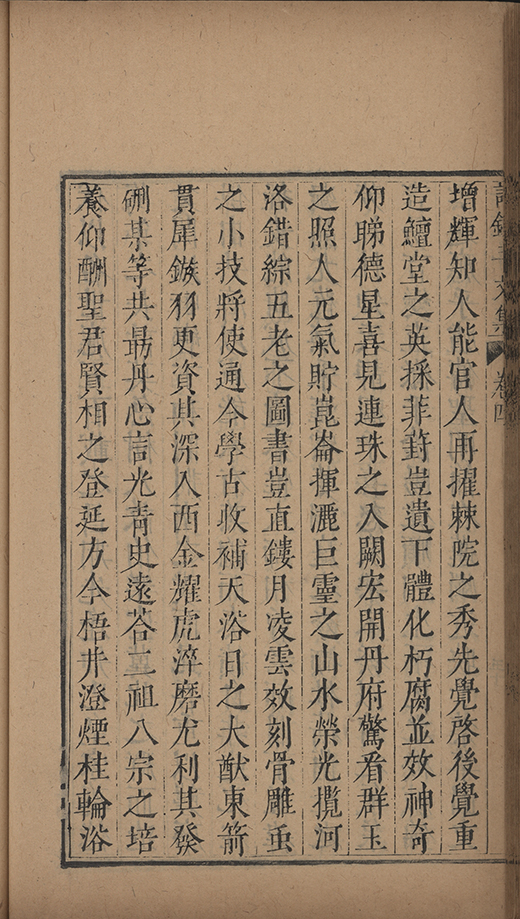 增輝知人能官人再擢棘院之秀先覺啓後覺重
造鱣堂之英採菲葑豈遺下體化朽腐並效神奇
仰睇德星喜見連珠之入闕宏開丹府驚看群玉
之照人元氣貯崑崙揮灑巨靈之山水榮光攬河
洛錯綜五老之圖書豈直鏤月凌雲效刻骨雕虫
之小技將使通今學古收補天浴日之大猷東箭
貫犀鏃羽更資其深入西金耀虎淬磨尤利其發
硎某等共勗丹心言光青史遠荅二祖八宗之培
養仰酬聖君賢相之登延方今梧井澄煙桂輪浴
卷四